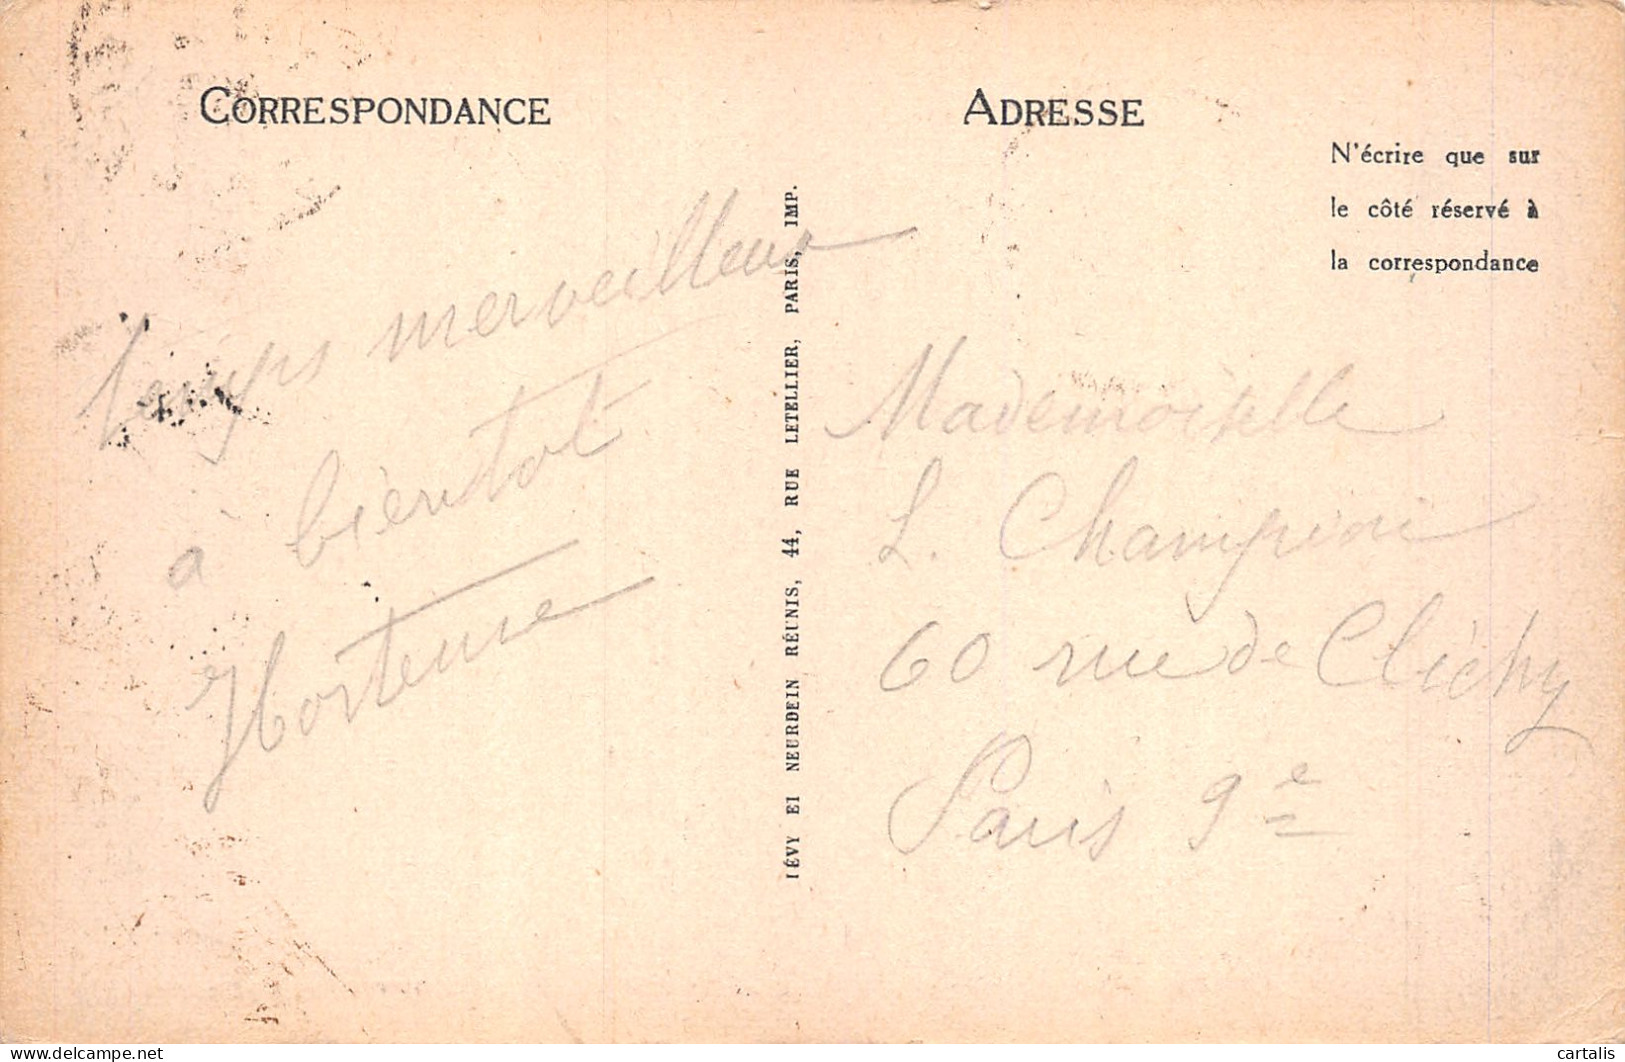 CORRESPONDANCE
temps merveilleux
à bientot
Hortense
IÉVY EI NEURDEIN RÉUNIS, 44, RUE LETELLIER, PARIS, IMP.
ADRESSE
N'écrire que sur
le côté réservé à
la correspondance
Mademoiselle
L. Champion
60 rue de Clichy
Paris 9e
delcampe.net
cartalis